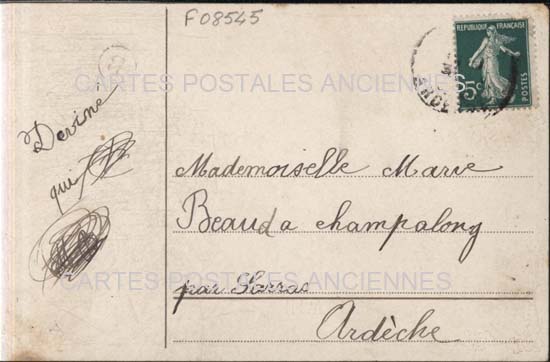 F08545
RÉPUBLIQUE FRANÇAISE
5c
POSTES
CARTES POSTALES ANCIENNES
Devine
qui
Mademoiselle Marie
Beauda champalong
CARTES POSTALES ANCIENNES
par Sarras
Ardèche